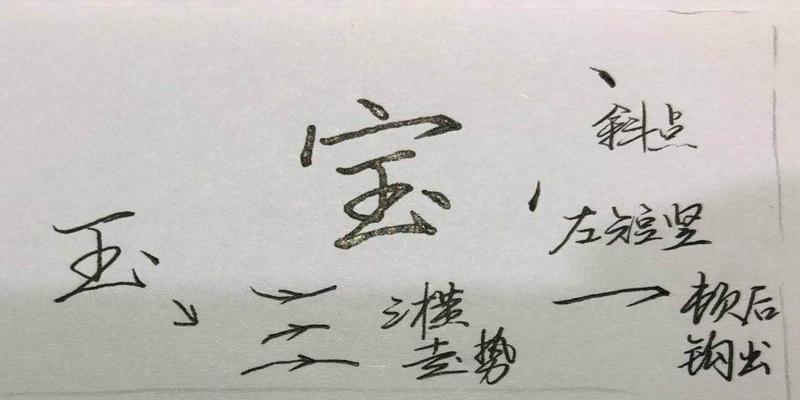 宝
斜点
左短竖
玉
三横
走势
顿后
钩出